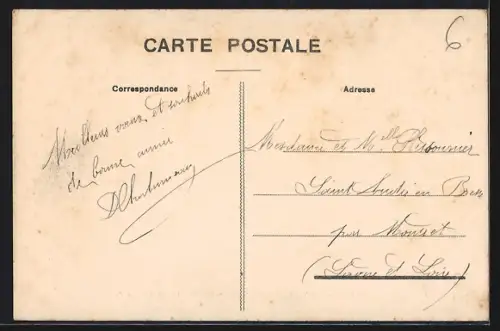 6
CARTE POSTALE
Correspondance
Adresse
Meilleurs vœux et souhaits
de bonne année
Madame et Melle
Saint André en Bresse
par Montret
(Saône et Loire)